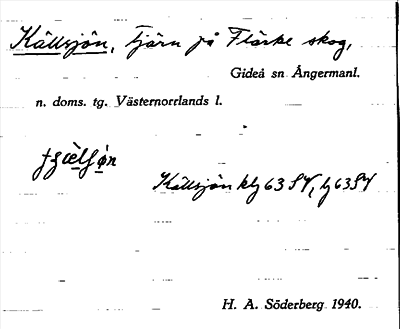 Källsjön, Tjärn på Flärke skog,
Gideå sn Ångermanl.
n. doms. tg. Västernorrlands l.
Källsjön klg 63 SV, lg 63 SV
H. A. Söderberg 1940.